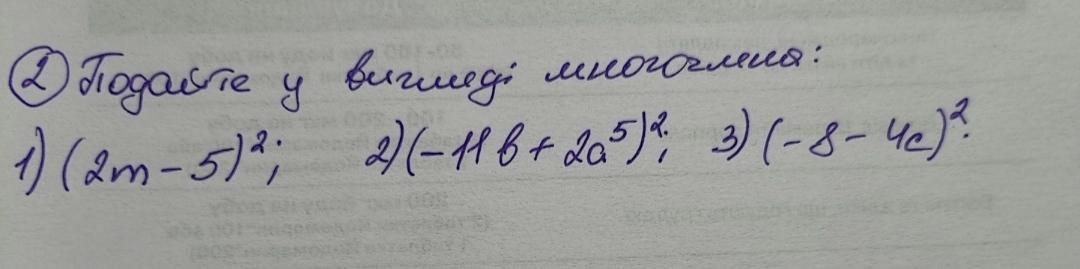 ② Подайте у вигляді многочлена:
1) (2m - 5)²; 2) (-11b + 2a⁵)²; 3) (-8 - 4c)².